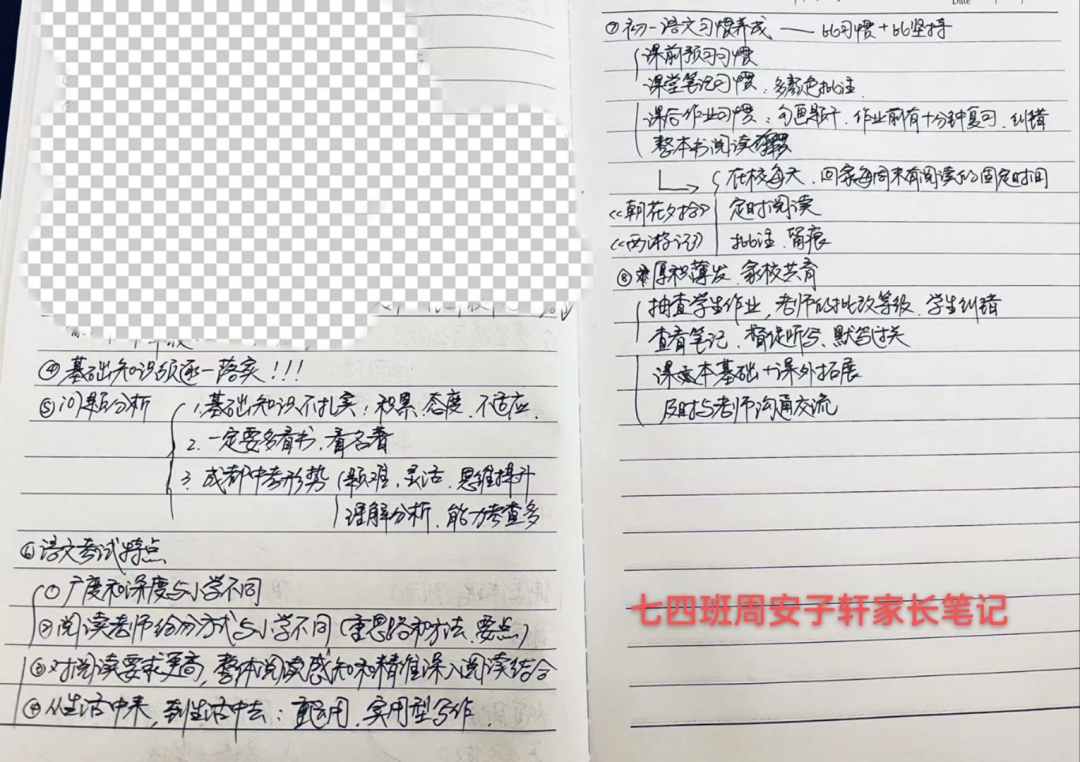 ④ 基础知识须逐一落实!!!
⑤ 问题分析
1. 基础知识不扎实:效果、态度、不适应.
2. 一定要多看书、看名著
3. 成都中考形势
题难、灵活、思维提升
理解分析、能力考查多
⑥ 语文考试特点
① 广度和深度与小学不同
② 阅读老师给分方式与小学不同(重思路和方法、要点)
③ 对阅读要求更高,整体阅读感知和精准深入阅读结合
④ 从生活中来,到生活中去:重运用、实用型写作.
Date
⑦ 初一语文习惯养成 —— 比习惯+比坚持
课前预习习惯
课堂笔记习惯:多颜色批注.
课后作业习惯:勾画题干、作业前有十分钟复习、纠错
整本书阅读
在校每天、回家每周末有阅读的固定时间
《朝花夕拾》 定时阅读
《西游记》 批注、留痕
⑧ 厚积薄发、家校共育
抽查学生作业,老师的批改等级、学生纠错
查看笔记、督促听写、默写过关
课本基础+课外拓展
及时与老师沟通交流
七四班周安子轩家长笔记